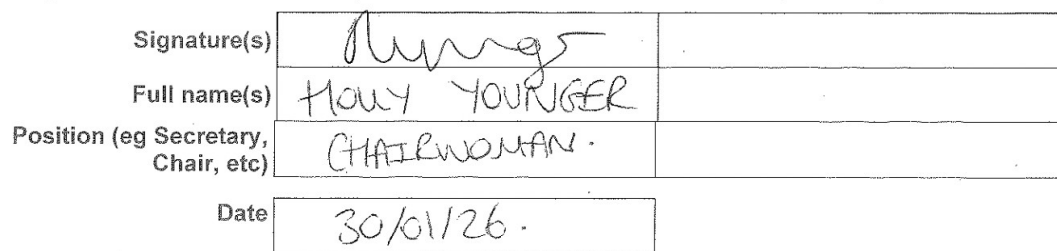 Signature(s)
Full name(s) HOLLY YOUNGER
Position (eg Secretary, CHAIRWOMAN.
Chair, etc)
Date 30/01/26.